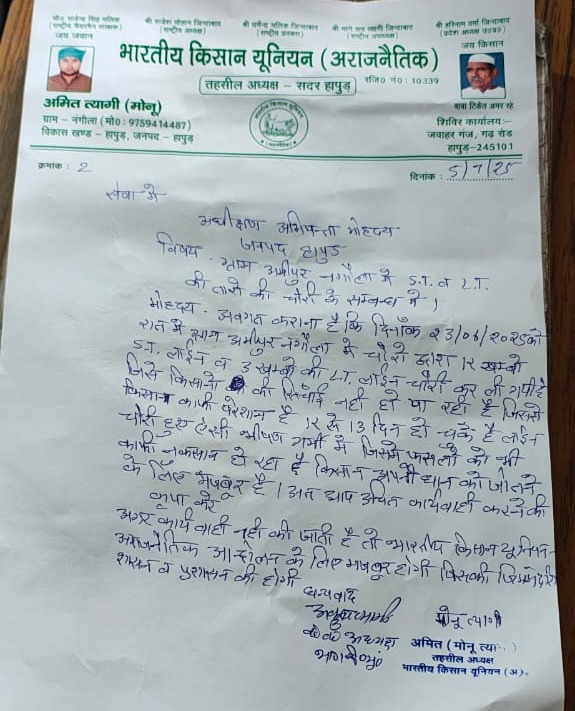 चौ० राजेन्द्र सिंह मलिक
(राष्ट्रीय चेयरमैन संरक्षक)
श्री राजेश चौहान जिन्दाबाद
(राष्ट्रीय अध्यक्ष)
श्री धर्मेन्द्र मलिक जिन्दाबाद
(राष्ट्रीय प्रवक्ता)
श्री मांगे राम त्यागी जिन्दाबाद
(राष्ट्रीय उपाध्यक्ष)
श्री हरिनाम वर्मा जिन्दाबाद
(प्रदेश अध्यक्ष उ०प्र०)
जय जवान
जय किसान
भारतीय किसान यूनियन (अराजनैतिक)
तहसील अध्यक्ष - सदर हापुड़
रजि० नं० : 10339
अमित त्यागी (मोनू)
ग्राम - नंगौला (मो० : 9759414487)
विकास खण्ड - हापुड़, जनपद - हापुड़
बाबा टिकैत अमर रहे
शिविर कार्यालय:-
जवाहर गंज, गढ़ रोड
हापुड़-245101
क्रमांक : 2
दिनांक : 5/7/25
सेवा मे
अधीक्षण अभियन्ता मोहदय
जनपद हापुड़
विषय - ग्राम अमीपुर नगौला मे S.T. व L.T.
की तारो की चोरी के सम्बन्ध मे।
मोहदय - अवगत कराना है कि दिनाँक 23/06/2025 को
रात मे ग्राम अमीपुर नगौला मे चोरो द्वारा 12 खम्बो
S.T. लाईन व 3 खम्बो की L.T. लाईन चोरी कर ली गयी है
जिसे किसानो की सिंचाई नही हो पा रही है जिससे
किसान काफी परेशान है 12 से 13 दिन हो चुके है लाईन
चोरी हुए ऐसी भीषण गर्मी मे जिसमे फसलो को भी
काफी नुकसान हो रहा है किसान अपनी धान को जोतने
के लिए मजबूर है। अत आप उचित कार्यवाही करने की
कृपा करे
अगर कार्यवाही नही की जाती है तो भारतीय किसान यूनियन
अराजनैतिक आन्दोलन के लिए मजबूर होगी जिसकी जिम्मेदारी
शासन व प्रशासन की होगी
धन्यवाद
मोनू त्यागी
अध्यक्ष
अमित (मोनू त्या
तहसील अध्यक्ष
भारतीय किसान यूनियन (अ).